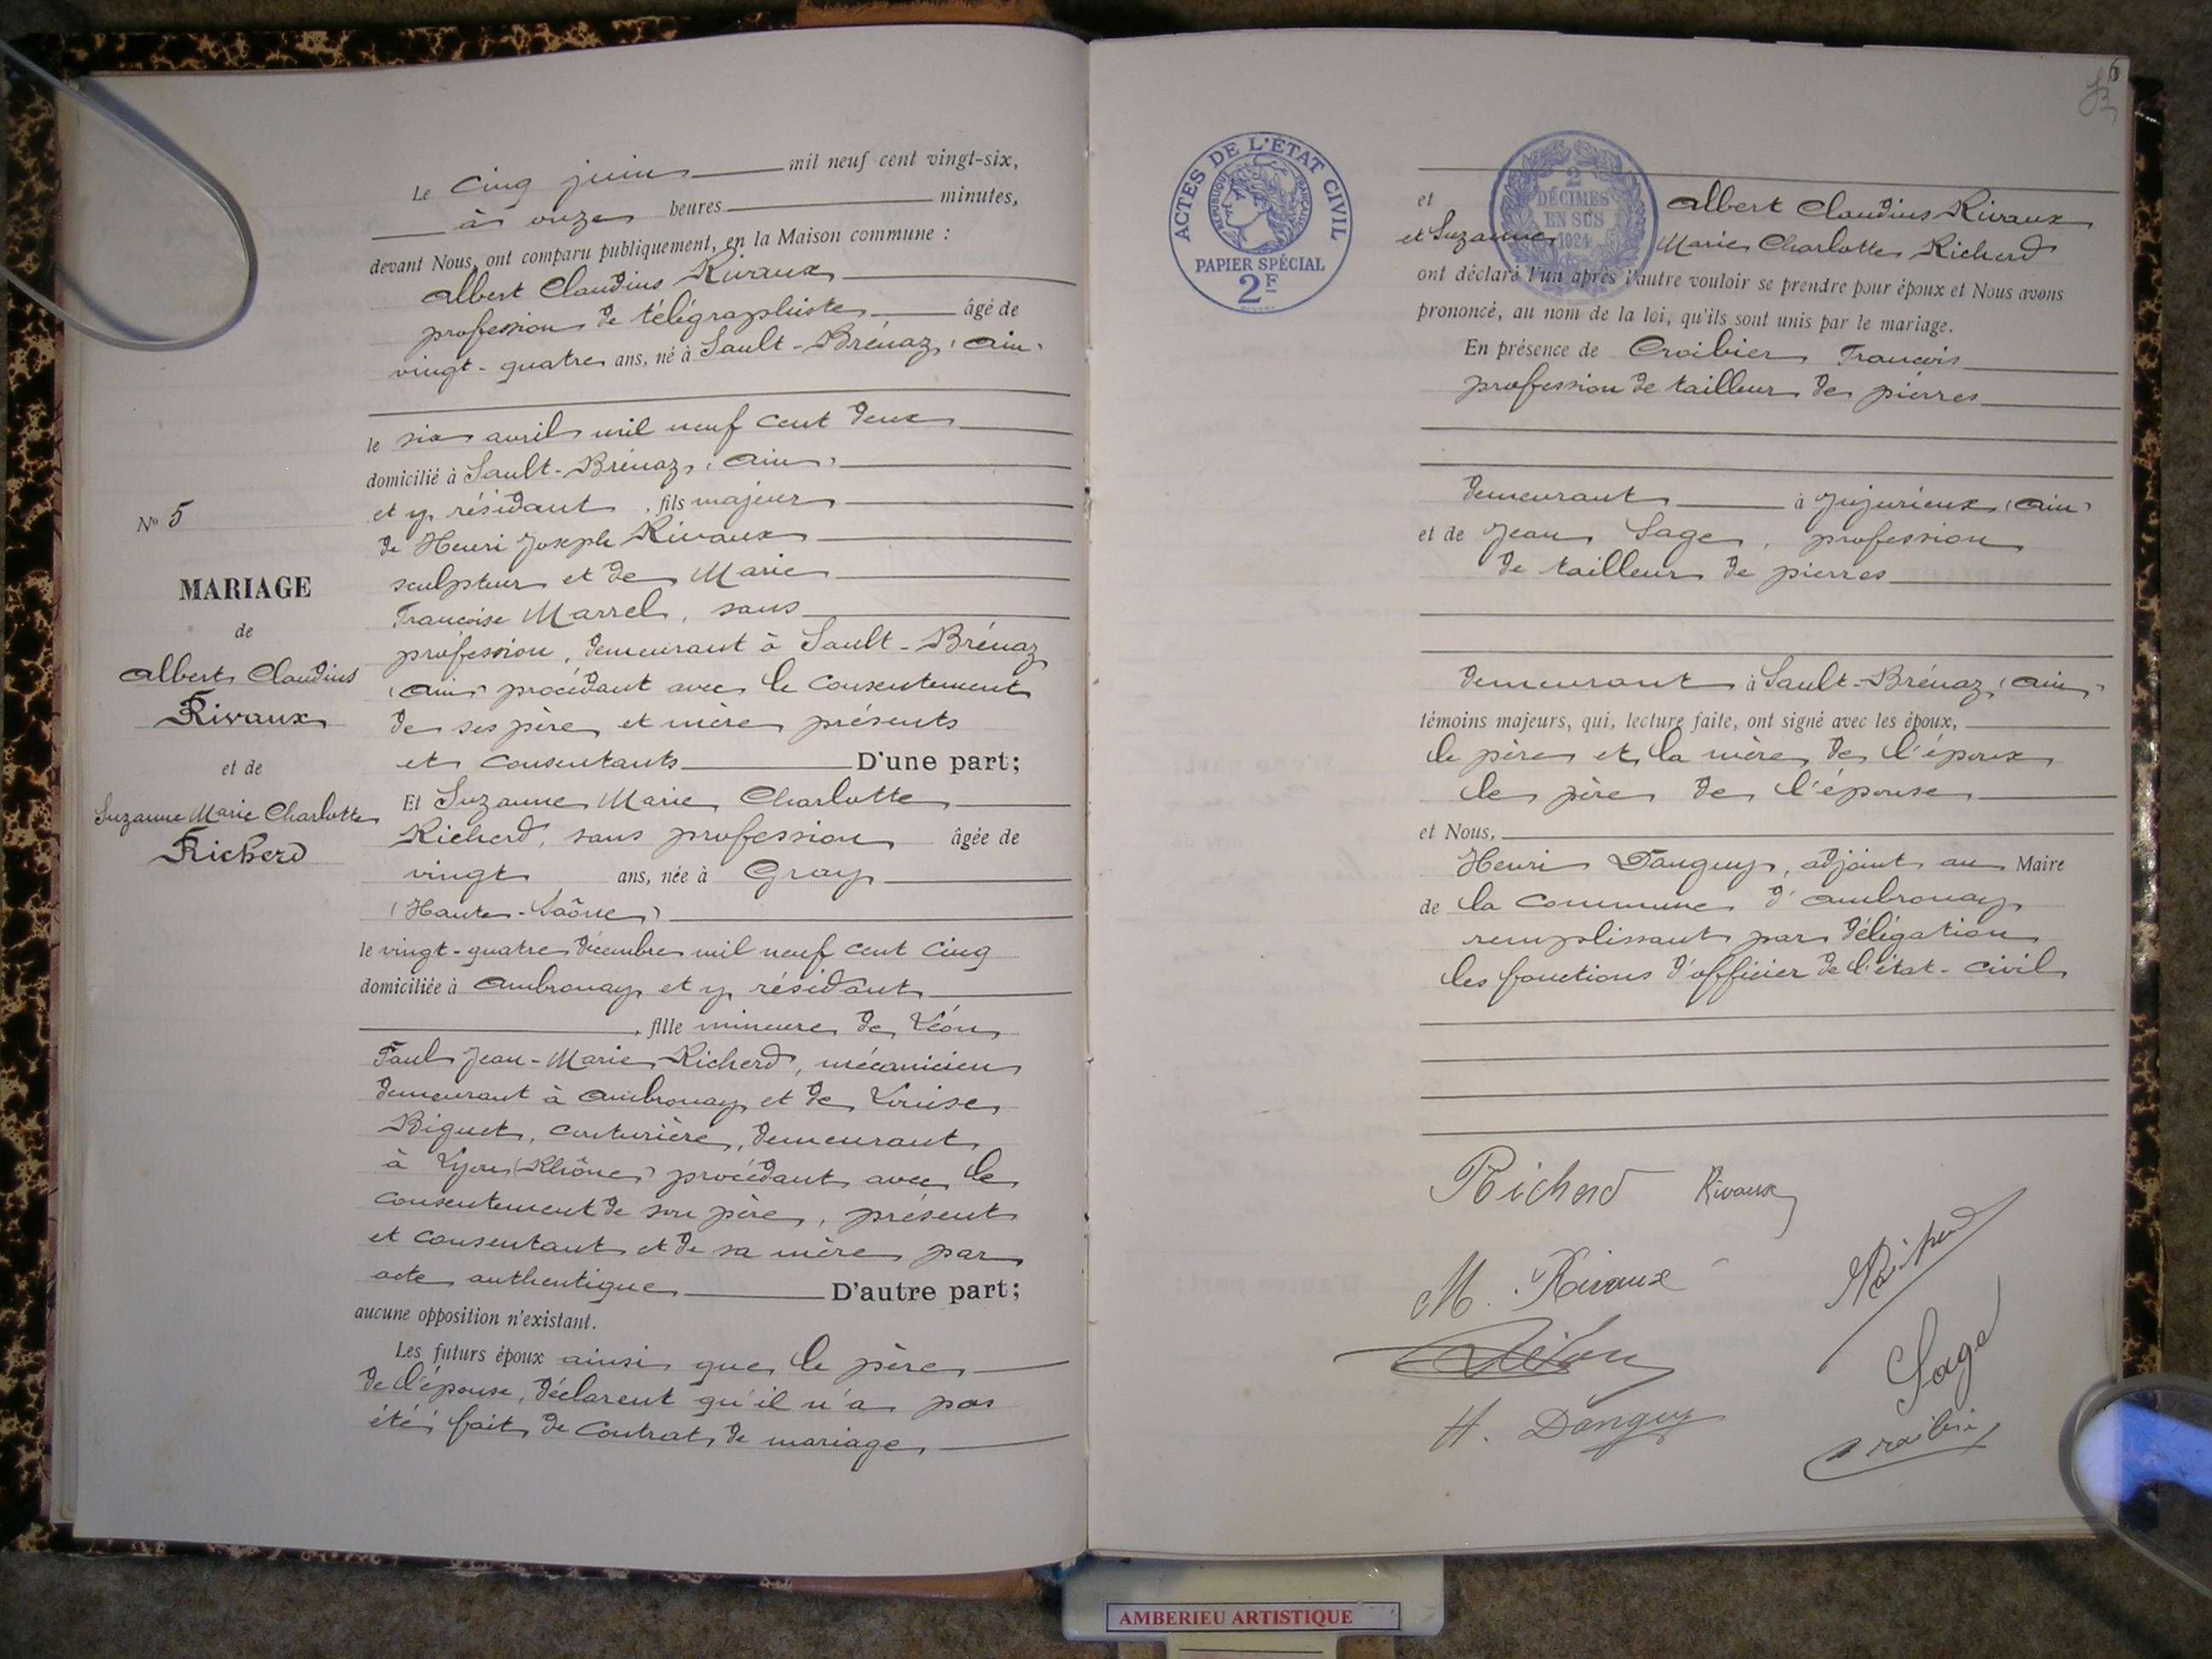 Le cinq juin mil neuf cent vingt-six,
à onze heures minutes,
devant Nous, ont comparu publiquement, en la Maison commune :
Albert Claudius Rivaux
profession de télégraphiste âgé de
vingt-quatre ans, né à Sault-Brénaz (Ain)
le six avril mil neuf cent deux
domicilié à Sault-Brénaz (Ain)
et y résidant, fils majeur
de Henri Joseph Rivaux
sculpteur et de Marie
Françoise Marrel, sans
profession, demeurant à Sault-Brénaz
(Ain) procédant avec le consentement
de ses père et mère présents
et consentants D'une part;
Et Suzanne Marie Charlotte
Richerd, sans profession âgée de
vingt ans, née à Gray
(Haute-Saône)
le vingt-quatre décembre mil neuf cent cinq
domiciliée à Ambronay et y résidant
, fille mineure de Léon
Paul Jean-Marie Richerd, mécanicien
demeurant à Ambronay et de Louise
Biguet, couturière, demeurant
à Lyon (Rhône) procédant avec le
consentement de son père, présent
et consentant et de sa mère par
acte authentique D'autre part;
aucune opposition n'existant.
Les futurs époux ainsi que le père
de l'épouse, déclarent qu'il n'a pas
été fait de contrat de mariage,
N° 5
MARIAGE
de
Albert Claudius
Rivaux
et de
Suzanne Marie Charlotte
Richerd
6
ACTES DE L'ÉTAT CIVIL
RÉPUBLIQUE FRANÇAISE
PAPIER SPÉCIAL
2F
2
DÉCIMES
EN SUS
1924
et Albert Claudius Rivaux
et Suzanne Marie Charlotte Richerd
ont déclaré l'un après l'autre vouloir se prendre pour époux et Nous avons
prononcé, au nom de la loi, qu'ils sont unis par le mariage.
En présence de Croibier François
profession de tailleur de pierres
demeurant à Jujurieux (Ain)
et de Jean Sage, profession
de tailleur de pierres
demeurant à Sault-Brénaz (Ain)
témoins majeurs, qui, lecture faite, ont signé avec les époux,
le père et la mère de l'époux
le père de l'épouse
et Nous,
Henri Danguy, adjoint au Maire
de la Commune d'Ambronay
remplissant par délégation
les fonctions d'officier de l'état-civil
Richerd Rivaux
M. Rivaux
Richerd
Sage
H. Danguy
Croibier
AMBERIEU ARTISTIQUE